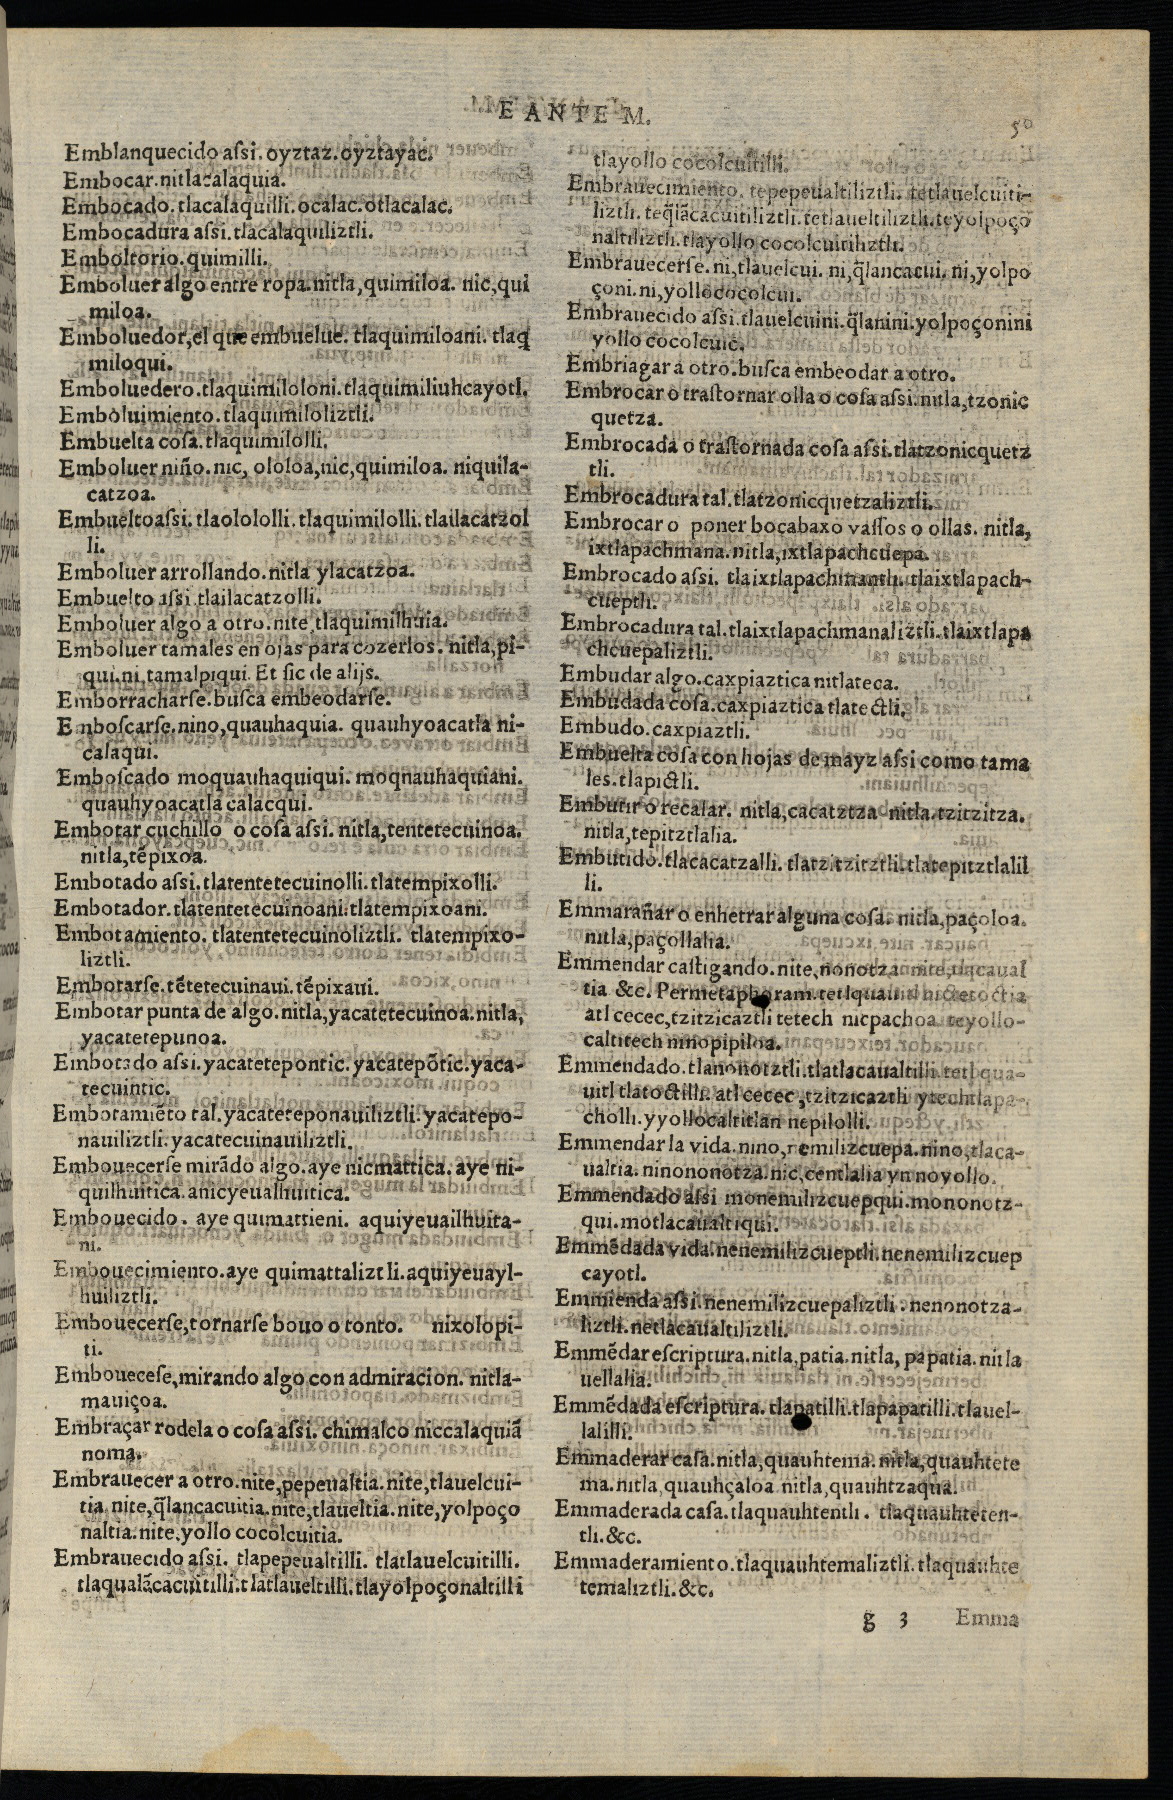 E ANTE M.
50
Emblanquecido assi. oyztaz. oyztayac.
Embocar. nitlacalaquia.
Embocado. tlacalaquilli. ocalac. otlacalac.
Embocadura assi. tlacalaquiliztli.
Emboltorio. quimilli.
Emboluer algo entre ropa. nitla, quimiloa. nic, qui
miloa.
Emboluedor, el que embuelue. tlaquimiloani. tlaq
miloqui.
Emboluedero. tlaquimiloloni. tlaquimiliuhcayotl.
Emboluimiento. tlaquimiloliztli.
Embuelta cosa. tlaquimilolli.
Emboluer niño. nic, ololoa, nic, quimiloa. niquila-
catzoa.
Embuelto assi. tlaolololli. tlaquimilolli. tlailacatzol
li.
Emboluer arrollando. nitla ylacatzoa.
Embuelto assi. tlailacatzolli.
Emboluer algo a otro. nite, tlaquimilhuia.
Emboluer tamales en ojas para cozerlos. nitla, pi-
qui. ni, tamalpiqui. Et sic de alijs.
Emborracharse. busca embeodarse.
Enboscarse. nino, quauhaquia. quauhyoacatla ni-
calaqui.
Emboscado moquauhaquiqui. moqnauhaquiani.
quauhyoacatla calacqui.
Embotar cuchillo o cosa assi. nitla, tentetecuinoa.
nitla, tẽpixoa.
Embotado assi. tlatentetecuinolli. tlatempixolli.
Embotador. tlatentetecuinoani. tlatempixoani.
Embotamiento. tlatentetecuinoliztli. tlatempixo-
liztli.
Embotarse. tẽtetecuinaui. tẽpixaui.
Embotar punta de algo. nitla, yacatetecuinoa. nitla,
yacatetepunoa.
Embotado assi. yacatetepontic. yacatepõtic. yaca-
tecuintic.
Embotamiẽto tal. yacateteponauiliztli. yacatepo-
nauiliztli. yacatecuinauiliztli.
Embouecerse mirãdo algo. aye nicmattica. aye ni-
quilhuitica. anicyeualhuitica.
Embouecido. aye quimattieni. aquiyeuailhuita-
ni.
Embouecimiento. aye quimattaliztli. aquiyeuayl-
huiliztli.
Embouecerse, tornarse bouo o tonto. nixolopi-
ti.
Embouecese, mirando algo con admiracion. nitla-
mauiçoa.
Embraçar rodela o cosa assi. chimalco niccalaquiã
noma.
Embrauecer a otro. nite, pepeualtia. nite, tlauelcui-
tia. nite, q̃lancacuitia. nite, tlaueltia. nite, yolpoço
naltia. nite, yollo cocolcuitia.
Embrauecido assi. tlapepeualtilli. tlatlauelcuitilli.
tlaqualãcacuitilli. tlatlaueltilli. tlayolpoçonaltilli
tlayollo cocolcuitilli.
Embrauecimiento. tepepeualtiliztli. tetlauelcuiti-
liztli. teq̃lãcacuitiliztli. tetlaueltiliztli. teyolpoço
naltiliztli. tlayollo cocolcuitiliztli.
Embrauecerse. ni, tlauelcui. ni, q̃lancacui. ni, yolpo
çoni. ni, yollococolcui.
Embrauecido assi. tlauelcuini. q̃lanini. yolpoçonini
yollo cocolcuic.
Embriagar a otro. busca embeodar a otro.
Embrocar o trastornar olla o cosa assi. nitla, tzonic
quetza.
Embrocada o trastornada cosa assi. tlatzonicquetz
tli.
Embrocadura tal. tlatzonicquetzaliztli.
Embrocar o poner bocabaxo vassos o ollas. nitla,
ixtlapachmana. nitla, ixtlapachcuepa.
Embrocado assi. tlaixtlapachmantli. tlaixtlapach-
cueptli.
Embrocadura tal. tlaixtlapachmanaliztli. tlaixtlapa
chcuepaliztli.
Embudar algo. caxpiaztica nitlateca.
Embudada cosa. caxpiaztica tlatectli.
Embudo. caxpiaztli.
Embuelta cosa con hojas de mayz assi como tama
les. tlapictli.
Embutir o recalar. nitla, cacatztza nitla. tzitzitza.
nitla, tepitztlalia.
Embutido. tlacacatzalli. tlatz. tzitztli. tlatepitztlalil
li.
Emmarañar o enhetrar alguna cosa. nitla, paçoloa.
nitla, paçollalia.
Emmendar castigando. nite, nonotza nite, tlacaual
tia &c. Per metaphoram. tetlquauitl nictetoctia
atl cecec, tzitzicaztli tetech nicpachoa teyollo-
caltitech ninopipiloa.
Emmendado. tlanonotztli. tlatlacaualtilli tetlqua-
uitl tlatoctilli. atl cecec, tzitzicaztli ytechtlapa-
cholli. yyollocaltitlan nepilolli.
Emmendar la vida. nino, nemilizcuepa. nino, tlaca-
ualtia. ninononotza. nic, centlalia yn noyollo.
Emmendado assi monemilizcuepqui. mononotz-
qui. motlacaualtiqui.
Emmẽdada vida. nenemilizcueptli. nenemilizcuep
cayotl.
Emmienda assi. nenemilizcuepaliztli. nenonotza-
liztli. netlacaualtiliztli.
Emmẽdar escriptura. nitla, patia. nitla, papatia. nitla
uellalia.
Emmẽdada escriptura. tlapatilli. tlapapatilli. tlauel-
lalilli.
Emmaderar casa. nitla, quauhtema. nitla, quauhtete
ma. nitla, quauhçaloa nitla, quauhtzaqua.
Emmaderada casa. tlaquauhtentli. tlaquauhteten-
tli. &c.
Emmaderamiento. tlaquauhtemaliztli. tlaquauhte
temaliztli. &c.
g 3 Emma